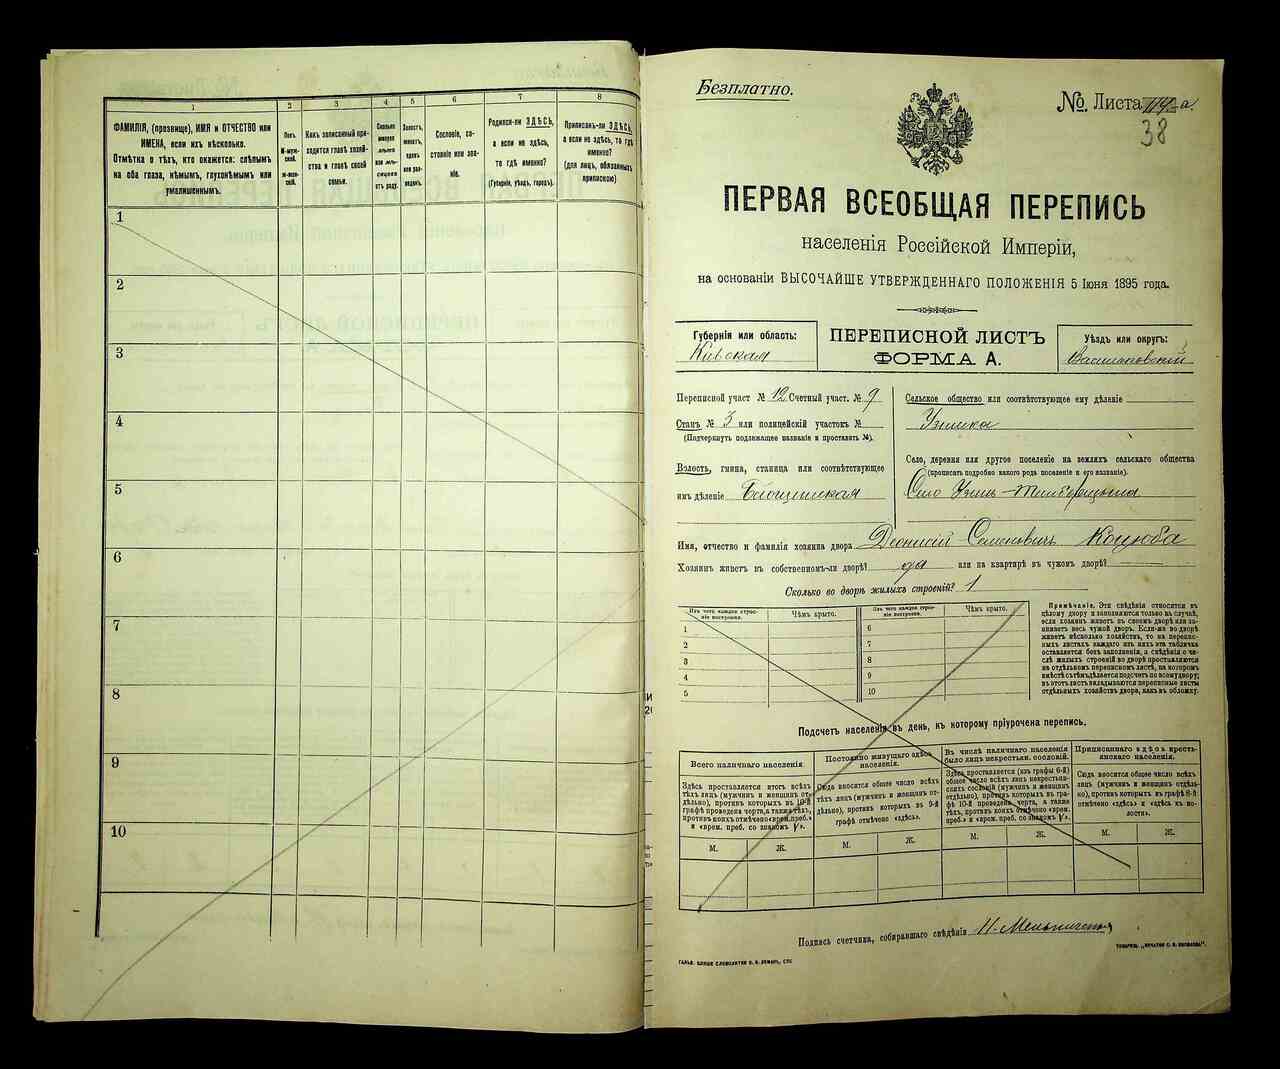 1 2 3 4 5 6 7 8
ФАМИЛІЯ, (прозвище), ИМЯ и ОТЧЕСТВО или
ИМЕНА, если ихъ нѣсколько.
Отмѣтка о тѣхъ, кто окажется: слѣпымъ
на оба глаза, нѣмымъ, глухонѣмымъ или
умалишеннымъ.
Полъ.
М-муж-
ской.
Ж-жен-
скій.
Какъ записанный при-
ходится главѣ хозяй-
ства и главѣ своей
семьи.
Сколько
минуло
лѣтъ
или мѣ-
сяцевъ
отъ роду.
Холостъ,
женатъ,
вдовъ
или раз-
веденъ.
Сословіе, со-
стояніе или зва-
ніе.
Родился-ли ЗДѢСЬ,
а если не здѣсь,
то гдѣ именно?
(Губернія, уѣздъ, городъ).
Приписанъ-ли ЗДѢСЬ,
а если не здѣсь, то гдѣ
именно?
(для лицъ, обязанныхъ
припискою)
1
2
3
4
5
6
7
8
9
10
Безплатно.
№ Листа а.
38
ПЕРВАЯ ВСЕОБЩАЯ ПЕРЕПИСЬ
населенія Россійской Имперіи,
на основаніи ВЫСОЧАЙШЕ УТВЕРЖДЕННАГО ПОЛОЖЕНІЯ 5 Іюня 1895 года.
Губернія или область:
Кіевская
ПЕРЕПИСНОЙ ЛИСТЪ
ФОРМА А.
Уѣздъ или округъ:
Васильковскій
Переписной участ № 12 Счетный участ. № 9
Станъ № 3 или полицейскій участокъ №
(Подчеркнуть подлежащее названіе и проставить №).
Волость, гмина, станица или соотвѣтствующее
имъ дѣленіе
Сельское общество или соотвѣтствующее ему дѣленіе
Село, деревня или другое поселеніе на земляхъ сельскаго общества
(прописать подробно какого рода поселеніе и его названіе).
Село Узинъ
Имя, отчество и фамилія хозяина двора Діонисій Семеновичъ Коцюба
Хозяинъ живетъ въ собственномъ-ли дворѣ? да или на квартирѣ въ чужомъ дворѣ?
Сколько во дворѣ жилыхъ строеній? 1
Изъ чего каждое строе-
ніе построено.
Чѣмъ крыто.
Изъ чего каждое строе-
ніе построено.
Чѣмъ крыто.
1 6
2 7
3 8
4 9
5 10
Примѣчаніе. Эти свѣдѣнія относятся къ
цѣлому двору и заполняются только въ случаѣ,
если хозяинъ живетъ въ своемъ дворѣ или за-
нимаетъ весь чужой дворъ. Если-же во дворѣ
живетъ нѣсколько хозяйствъ, то на перепис-
ныхъ листахъ каждаго изъ нихъ эта табличка
оставляется безъ заполненія, а свѣдѣнія о чи-
слѣ жилыхъ строеній во дворѣ проставляются
на отдѣльномъ переписномъ листѣ, на которомъ
вмѣстѣ съ тѣмъ дѣлается подсчетъ по всему двору;
въ этотъ листъ вкладываются переписные листы
отдѣльныхъ хозяйствъ двора, какъ въ обложку.
Подсчетъ населенія въ день, къ которому пріурочена перепись.
Всего наличнаго населенія.
Здѣсь проставляется итогъ всѣхъ
тѣхъ лицъ (мужчинъ и женщинъ от-
дѣльно), противъ которыхъ въ 10-й
графѣ проведена черта, а также тѣхъ,
противъ коихъ отмѣчено «врем. преб.»
и «врем. преб. со знакомъ V».
Постоянно живущаго здѣсь
населенія.
Сюда вносится общее число всѣхъ
тѣхъ лицъ (мужчинъ и женщинъ от-
дѣльно), противъ которыхъ въ 9-й
графѣ отмѣчено «здѣсь».
Въ числѣ наличнаго населенія
было лицъ некрестьян. сословій.
Здѣсь проставляется (изъ графы 6-й)
общее число всѣхъ лицъ некрестьян-
скихъ сословій (мужчинъ и женщинъ
отдѣльно), противъ которыхъ въ гра-
фѣ 10-й проведена черта, а также
тѣхъ, противъ коихъ отмѣчено «врем.
преб.» и «врем. преб. со знакомъ V».
Приписаннаго здѣсь кресть-
янскаго населенія.
Сюда вносится общее число всѣхъ
лицъ (мужчинъ и женщинъ отдѣль-
но), противъ которыхъ въ графѣ 8-й
отмѣчено «здѣсь» и «здѣсь къ во-
лости».
М. Ж. М. Ж. М. Ж. М. Ж.
Подпись счетчика, собиравшаго свѣдѣнія